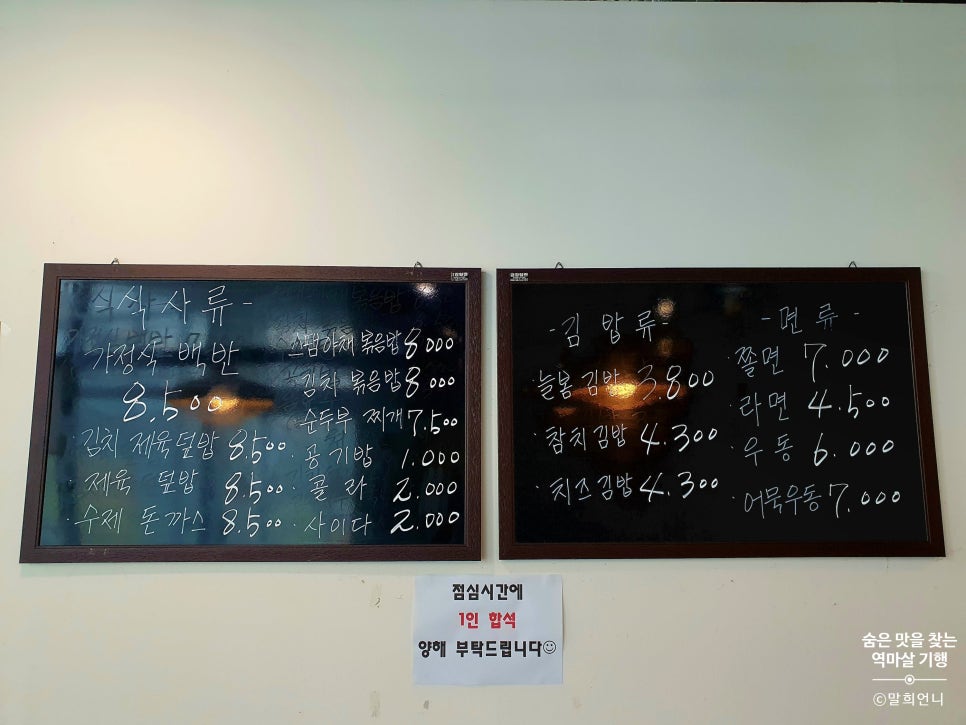 - 식 사 류 -
가정식 백반
8,500
· 김치 제육덮밥 8.500
· 제육 덮밥 8.500
· 수제 돈까스 8.500
스팸야채 볶음밥 8000
김치 볶음밥 8000
· 순두부 찌개 7.500
· 공기밥 1.000
· 콜라 2.000
· 사이다 2.000
- 김 밥 류 -
늘봄 김밥 3.800
· 참치김밥 4.300
· 치즈김밥 4.300
- 면 류 -
· 쫄면 7.000
· 라면 4.500
· 우동 6.000
· 어묵우동 7.000
점심시간에
1인 합석
양해 부탁드립니다☺
숨은 맛을 찾는
역마살 기행
©말희언니